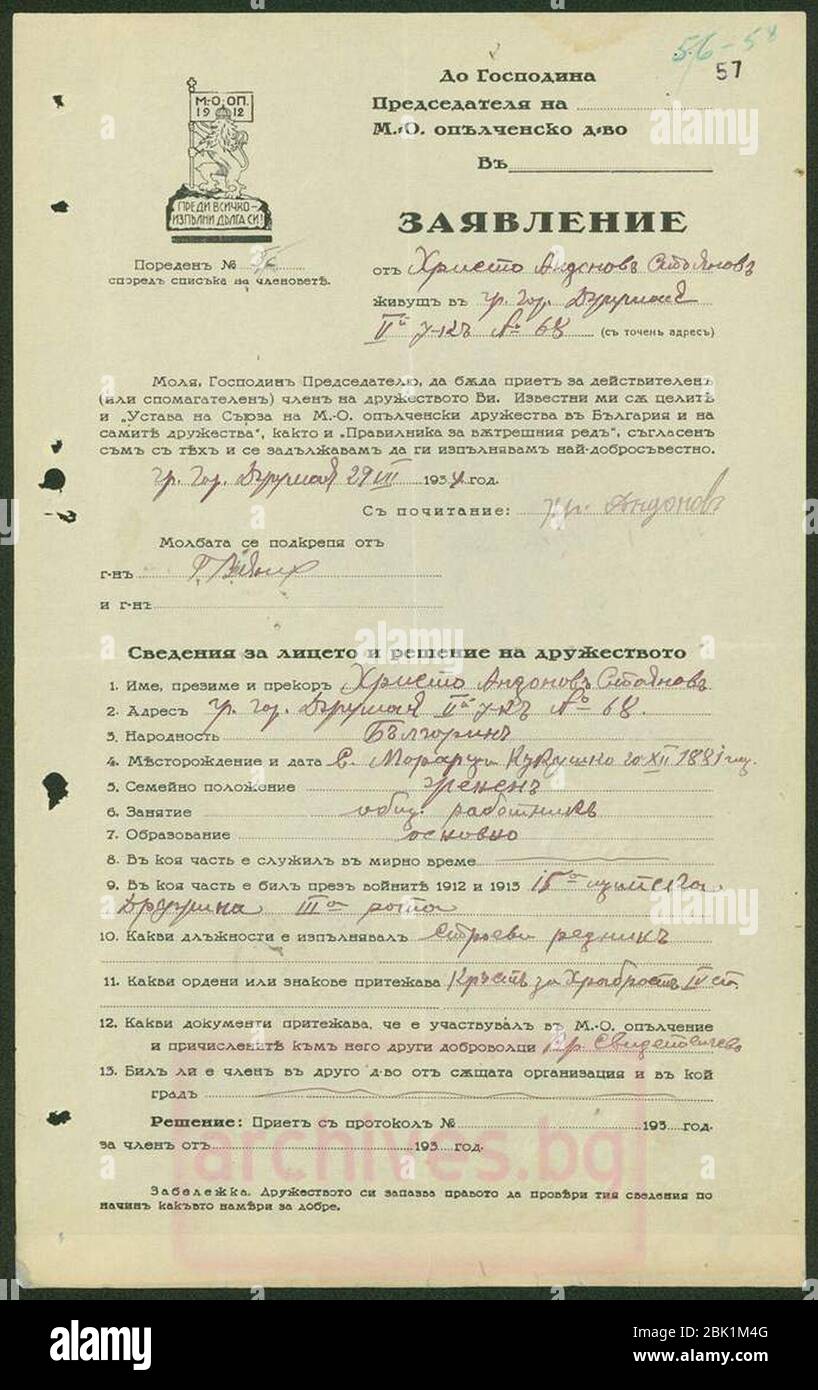 56-58
57
М.-О. ОП.
19 12
ПРЕДИ ВСИЧКО-
ИЗПЪЛНИ ДЪЛГА СИ!
До Господина
Председателя на
М.-О. опълченско д-во
Въ
ЗАЯВЛЕНИЕ
Пореденъ №
споредъ списъка на членоветѣ.
отъ Христо Андоновъ Стояновъ
живущъ въ гр. Гор. Джумая
II й у-къ № 68 (съ точенъ адресъ)
Моля, Господинъ Председателю, да бѫда приетъ за действителенъ
(или спомагателенъ) членъ на дружеството Ви. Известни ми сѫ целитѣ
и „Устава на Съюза на М.-О. опълченски дружества въ България и на
самитѣ дружества", както и „Правилника за вѫтрешния редъ", съгласенъ
съмъ съ тѣхъ и се задължавамъ да ги изпълнявамъ най-добросъвестно.
гр. Гор. Джумая 29 III 1934 год.
Съ почитание: Хр. Андоновъ
Молбата се подкрепя отъ
г-нъ
и г-нъ
Сведения за лицето и решение на дружеството
1. Име, презиме и прекоръ Христо Андоновъ Стояновъ
2. Адресъ гр. Гор. Джумая II й у-къ № 68.
3. Народность Българинъ
4. Мѣсторождение и дата с. Морарци Кукушко 20 XII 1881 год.
5. Семейно положение жененъ
6. Занятие общ. работникъ
7. Образование основно
8. Въ коя часть е служилъ въ мирно време
9. Въ коя часть е билъ през войнитѣ 1912 и 1913 15та щипска
Дружина III та рота
10. Какви длъжности е изпълнявалъ Строеви редникъ
11. Какви ордени или знакове притежава Кръстъ за Храбростъ IV ст.
12. Какви документи притежава, че е участвувалъ въ М.-О. опълчение
и причисленитѣ към него други доброволци Кр. Свидетелство
13. Билъ ли е членъ въ друго д-во отъ сѫщата организация и въ кой
градъ
Решение: Приетъ съ протоколъ № 193 год.
за членъ отъ 193 год.
Забележка. Дружеството си запазва правото да провѣри тия сведения по
начинъ какъвто намѣри за добре.
archives.bg
alamy
alamy
Image ID: 2BK1M4G
www.alamy.com